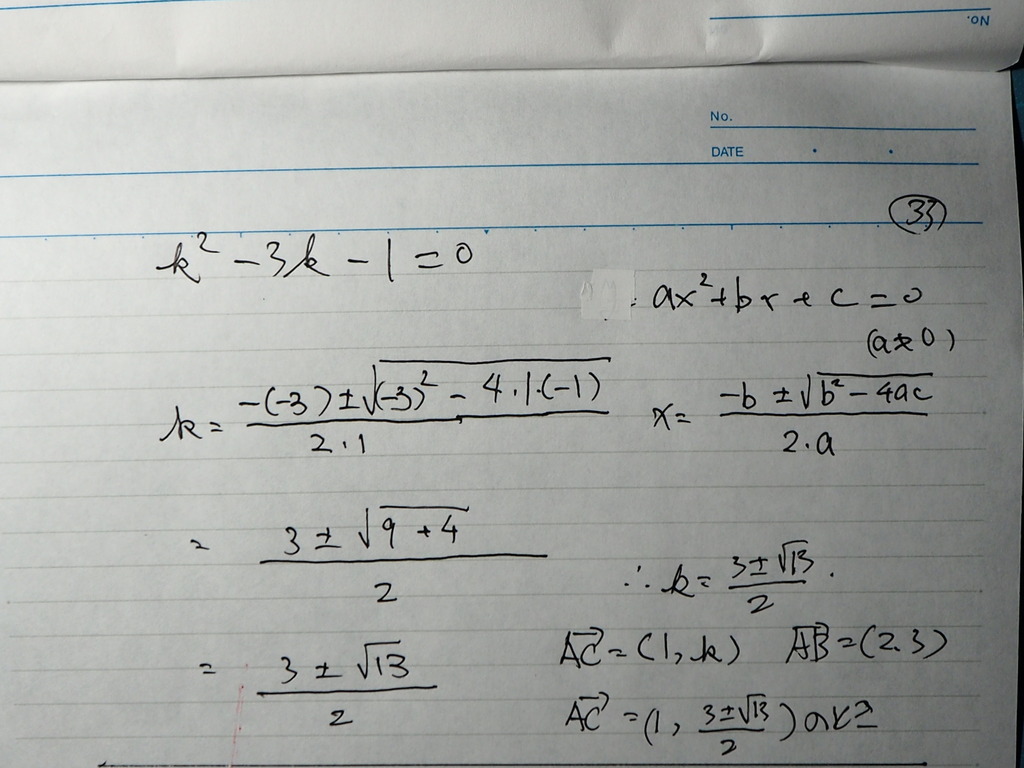 No.
No.
DATE
33
k² - 3k - 1 = 0
ax² + bx + c = 0
(a ≠ 0)
k = (-(-3) ± √((-3)² - 4·1·(-1))) / (2·1)
x = (-b ± √(b² - 4ac)) / (2·a)
= (3 ± √(9 + 4)) / 2
∴ k = (3 ± √13) / 2.
= (3 ± √13) / 2
AC→ = (1, k) AB→ = (2.3)
AC→ = (1, (3 ± √13) / 2)